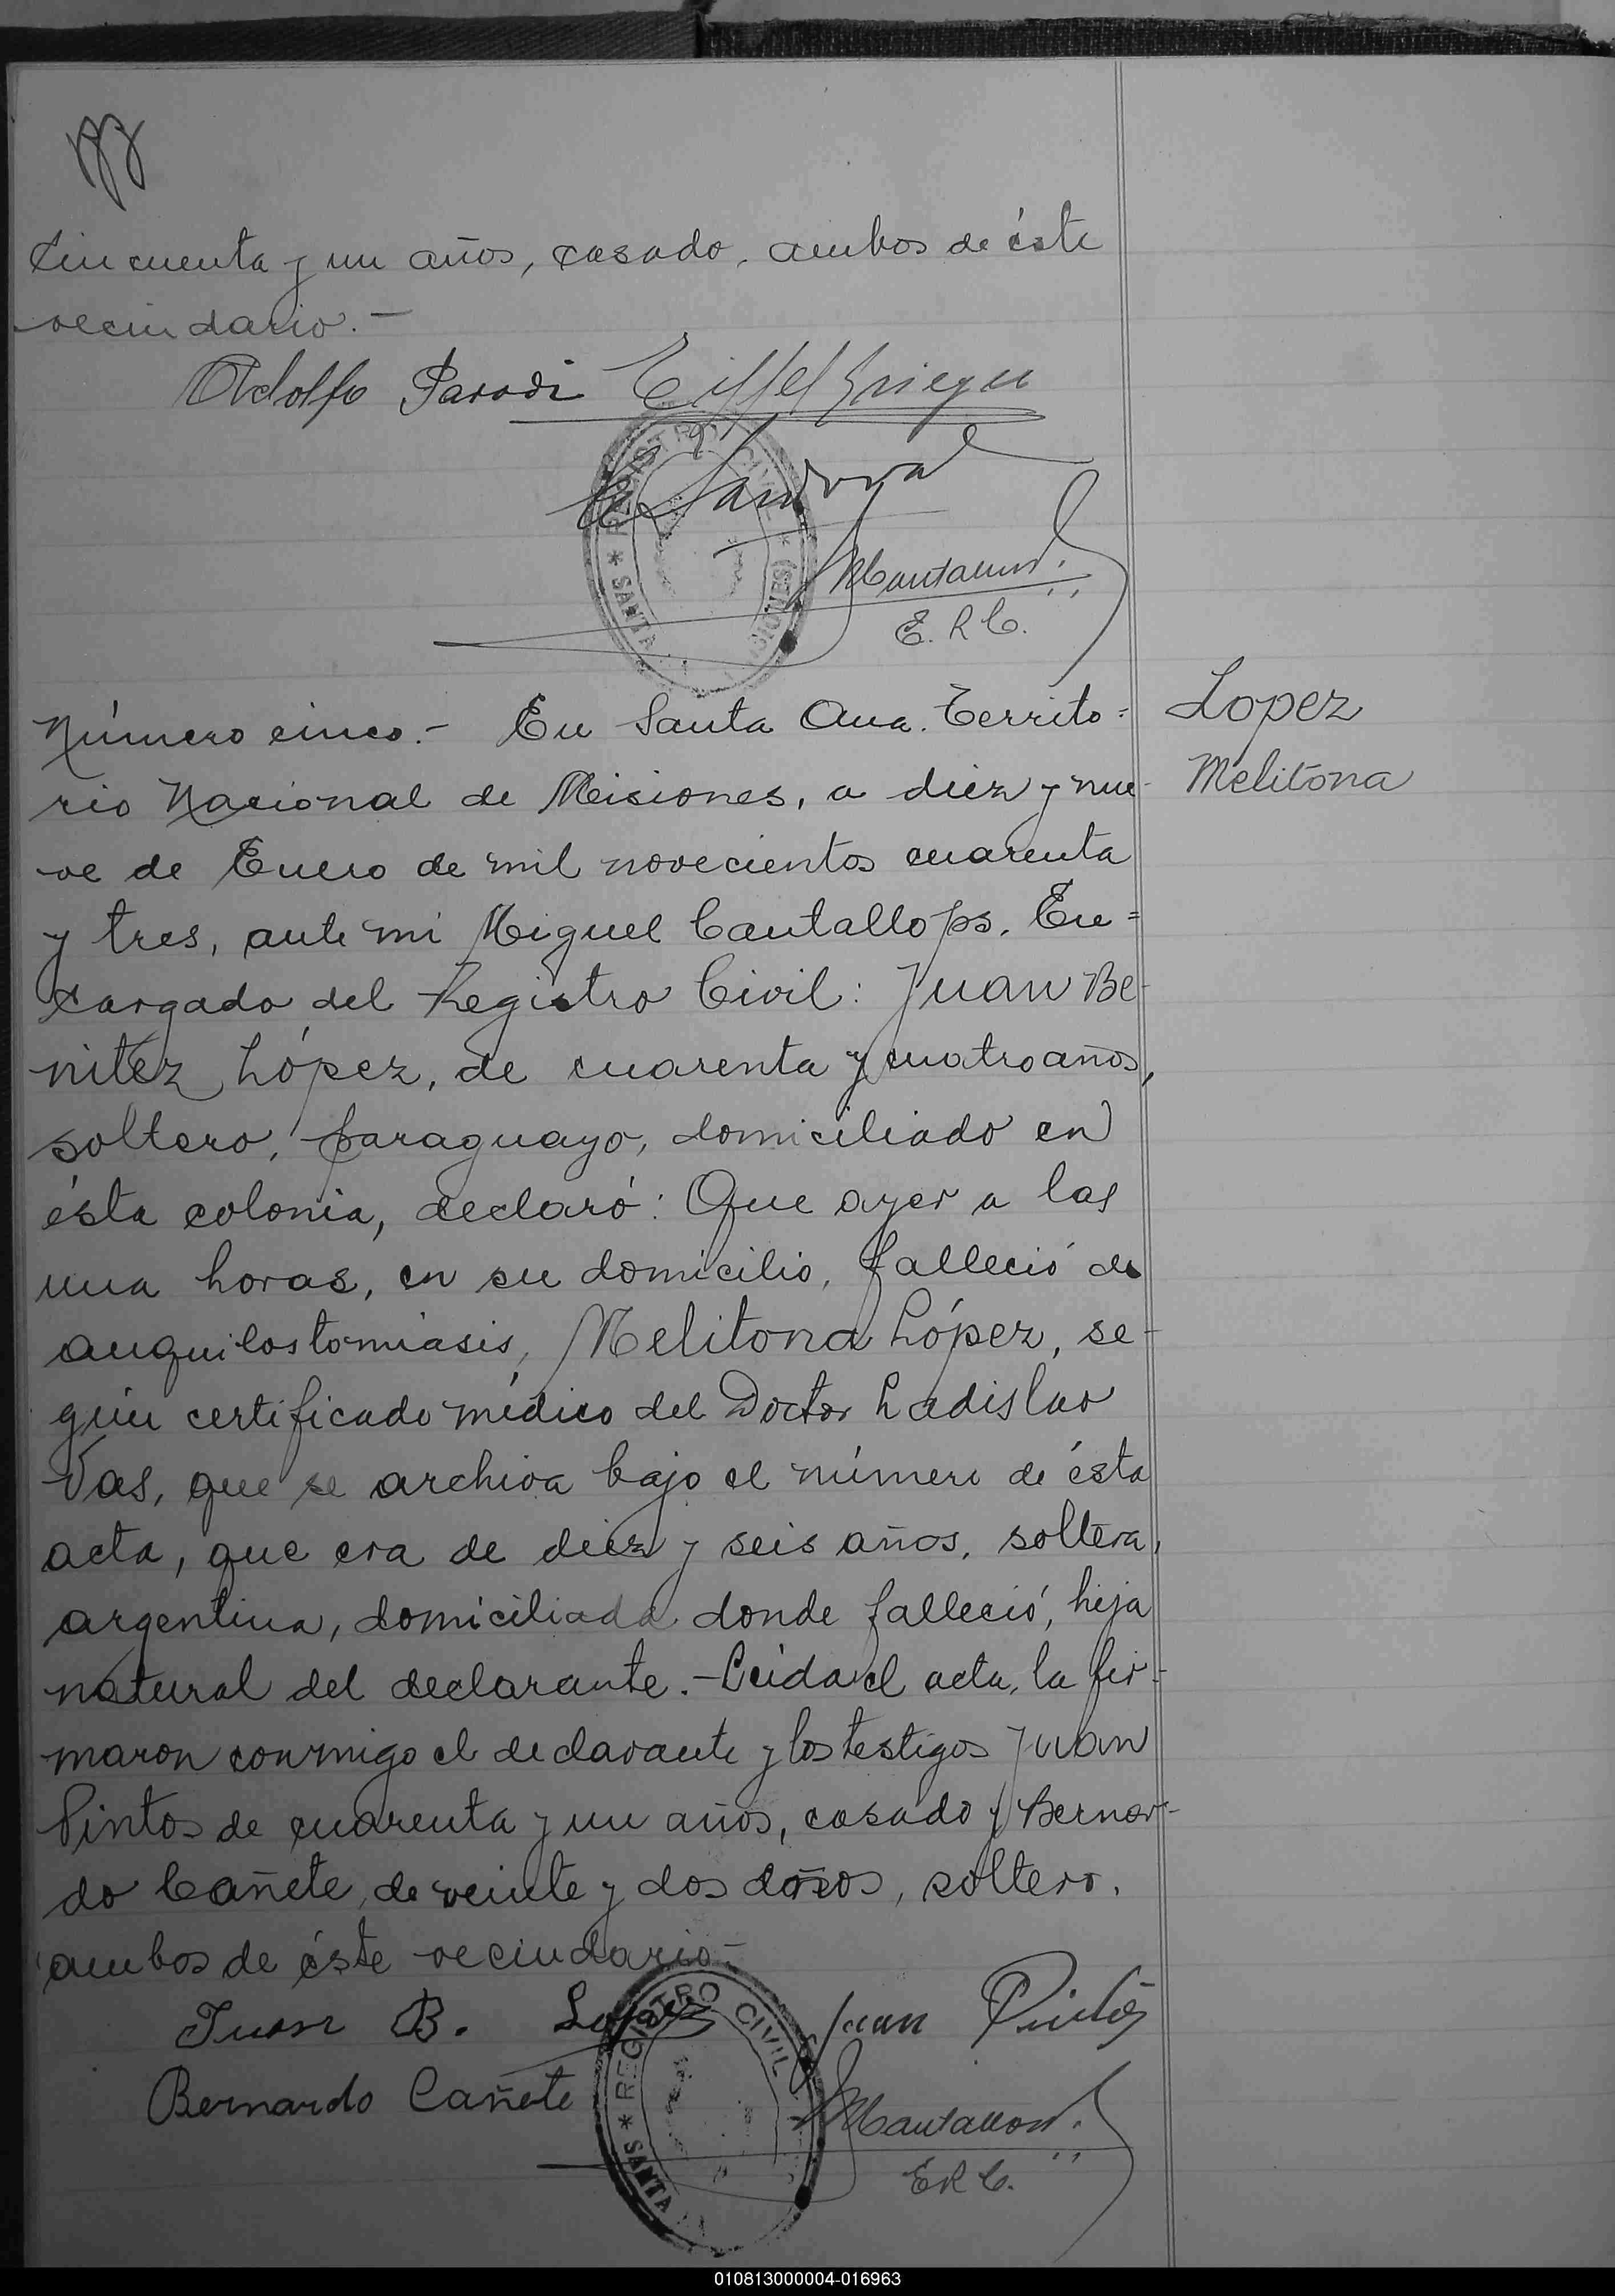 cincuenta y un años, casado, ambos de éste
vecindario.-
Adolfo Parodi
Sandoval
E. R. C.
Número cinco.- En Santa Ana. Territo=
rio Nacional de Misiones, a diez y nue-
ve de Enero de mil novecientos cuarenta
y tres, ante mi Miguel Cantallops. En=
cargado del Registro Civil: Juan Be-
nitez López, de cuarenta y cuatro años,
soltero, paraguayo, domiciliado en
ésta colonia, declaró: Que ayer a las
una horas, en su domicilio, falleció de
anquilostomiasis, Melitona López, se-
gún certificado médico del Doctor Ladislao
Vas, que se archiva bajo el número de ésta
acta, que era de diez y seis años, soltera,
argentina, domiciliada donde falleció, hija
natural del declarante.- Leída el acta, la fir-
maron conmigo el declarante y los testigos Juan
Pintos de cuarenta y un años, casado y Bernar-
do Cañete, de veinte y dos años, soltero.
ambos de éste vecindario-
Juan B. Lopez Juan Pintos
Bernardo Cañete
E R C.
REGISTRO CIVIL
* SANTA
Lopez
Melitona
010813000004-016963